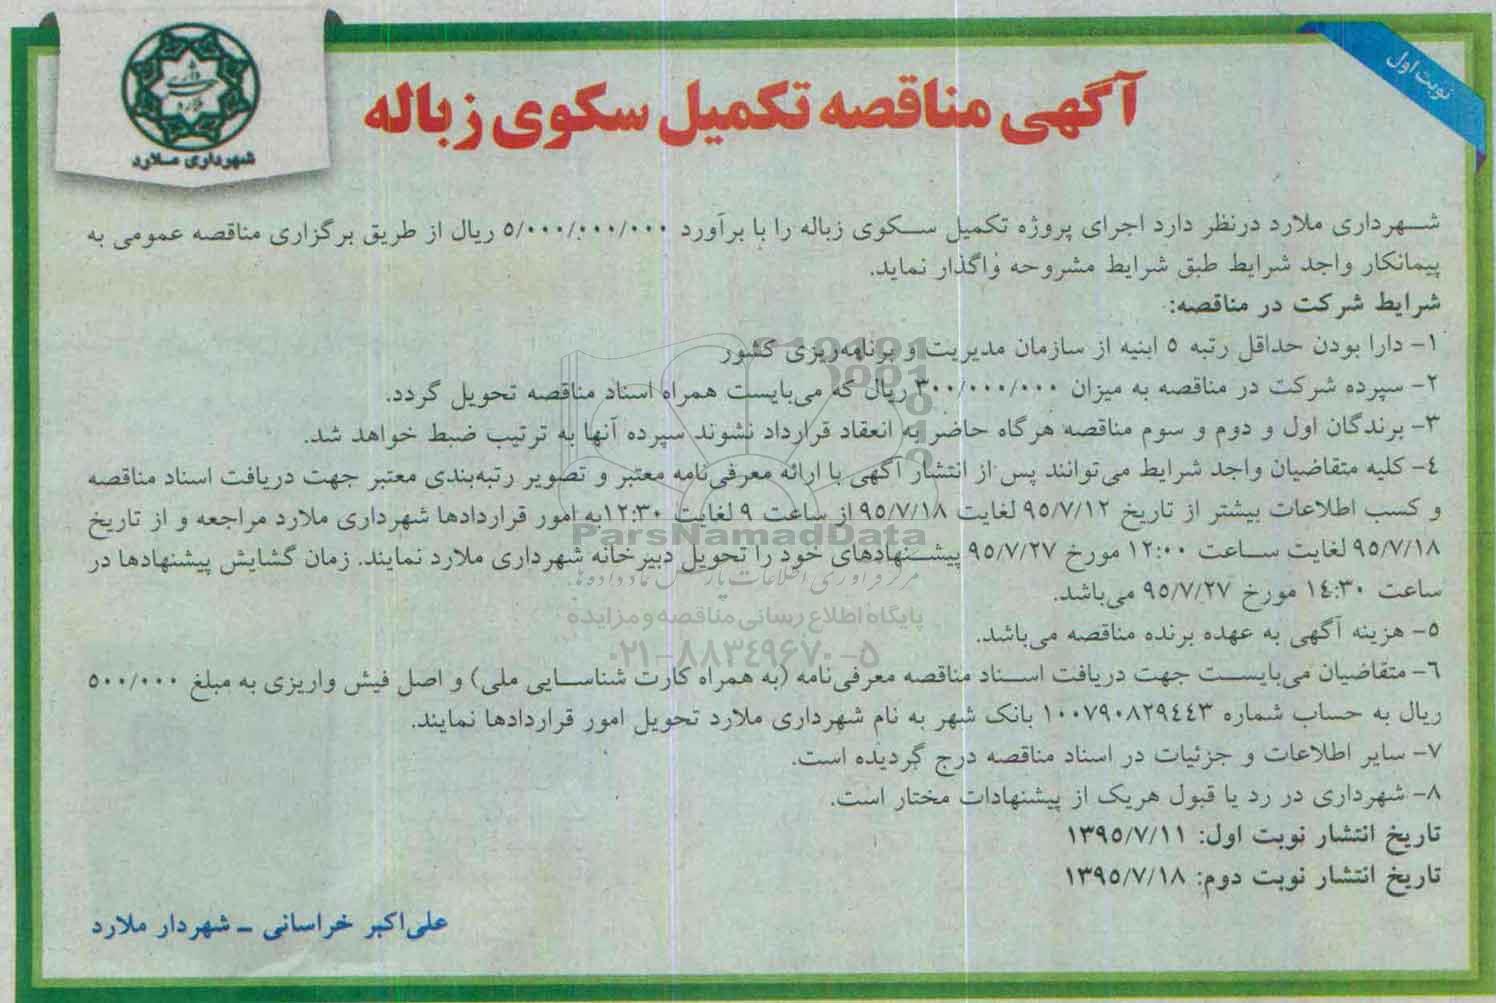 نوبت اول
شهرداری ملارد
آگهی مناقصه تکمیل سکوی زباله
شهرداری ملارد درنظر دارد اجرای پروژه تکمیل سکوی زباله را با برآورد ۵/۰۰۰/۰۰۰/۰۰۰ ریال از طریق برگزاری مناقصه عمومی به
پیمانکار واجد شرایط طبق شرایط مشروحه واگذار نماید.
شرایط شرکت در مناقصه:
۱- دارا بودن حداقل رتبه ۵ ابنیه از سازمان مدیریت و برنامه‌ریزی کشور
۲- سپرده شرکت در مناقصه به میزان ۳۰۰/۰۰۰/۰۰۰ ریال که می‌بایست همراه اسناد مناقصه تحویل گردد.
۳- برندگان اول و دوم و سوم مناقصه هرگاه حاضر به انعقاد قرارداد نشوند سپرده آنها به ترتیب ضبط خواهد شد.
۴- کلیه متقاضیان واجد شرایط می‌توانند پس از انتشار آگهی با ارائه معرفی‌نامه معتبر و تصویر رتبه‌بندی معتبر جهت دریافت اسناد مناقصه
و کسب اطلاعات بیشتر از تاریخ ۹۵/۷/۱۲ لغایت ۹۵/۷/۱۸ از ساعت ۹ لغایت ۱۲:۳۰ به امور قراردادها شهرداری ملارد مراجعه و از تاریخ
۹۵/۷/۱۸ لغایت ساعت ۱۲:۰۰ مورخ ۹۵/۷/۲۷ پیشنهادهای خود را تحویل دبیرخانه شهرداری ملارد نمایند. زمان گشایش پیشنهادها در
ساعت ۱۴:۳۰ مورخ ۹۵/۷/۲۷ می‌باشد.
۵- هزینه آگهی به عهده برنده مناقصه می‌باشد.
۶- متقاضیان می‌بایست جهت دریافت اسناد مناقصه معرفی‌نامه (به همراه کارت شناسایی ملی) و اصل فیش واریزی به مبلغ ۵۰۰/۰۰۰
ریال به حساب شماره ۱۰۰۷۹۰۸۲۹۴۴۳ بانک شهر به نام شهرداری ملارد تحویل امور قراردادها نمایند.
۷- سایر اطلاعات و جزئیات در اسناد مناقصه درج گردیده است.
۸- شهرداری در رد یا قبول هریک از پیشنهادات مختار است.
تاریخ انتشار نوبت اول: ۱۳۹۵/۷/۱۱
تاریخ انتشار نوبت دوم: ۱۳۹۵/۷/۱۸
علی‌اکبر خراسانی - شهردار ملارد
ParsNamadData
مرکز فرآوری اطلاعات پارس نماد داده ها
پایگاه اطلاع رسانی مناقصه و مزایده
۰۲۱-۸۸۳۴۹۶۷۰-۵